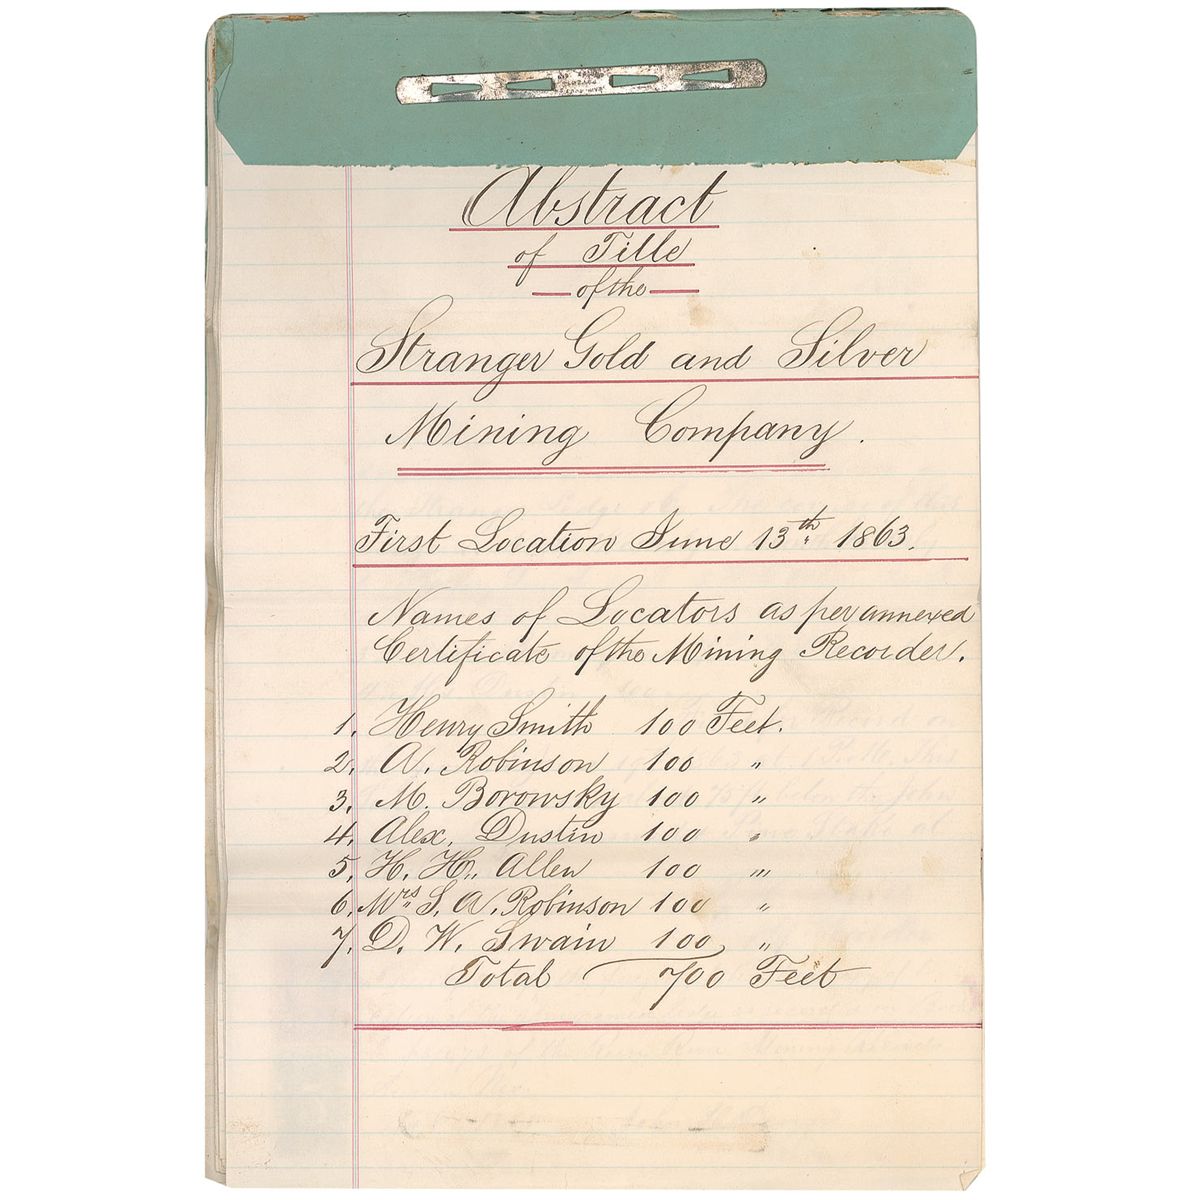 Abstract
of Title
of the
Stranger Gold and Silver
Mining Company.
First Location June 13th 1863.
Names of Locators as per annexed
Certificate of the Mining Recorder.
1. Henry Smith 100 Feet.
2. A. Robinson 100 "
3. M. Borowsky 100 "
4. Alex. Dustin 100 "
5. H. H. Allen 100 "
6. Mrs S. A. Robinson 100 "
7. D. W. Swain 100 "
Total 700 Feet